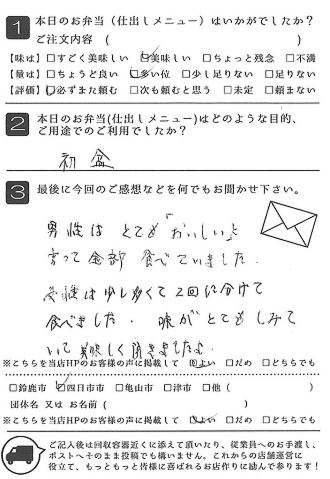 1 本日のお弁当(仕出しメニュー)はいかがでしたか?
ご注文内容 ( )
【味は】□すごく美味しい ☑美味しい □ちょっと残念 □不満
【量は】□ちょうど良い ☑多い位 □少し足りない □足りない
【評価】☑必ずまた頼む □次も頼むと思う □未定 □頼まない
2 本日のお弁当(仕出しメニュー)はどのような目的、
ご用途でのご利用でしたか?
初盆
3 最後に今回のご感想などを何でもお聞かせ下さい。
男性はとても「おいしいよ
言って全部食べていました.
女性は少し多くて2回に分けて
食べました. 味がとてもしみて
いて美味しく頂きましたよ.
※こちらを当店HPのお客様の声に掲載して ☑よい □だめ □どちらでも
□鈴鹿市 ☑四日市市 □亀山市 □津市 □他 ( )
団体名 又は お名前 ( )
※こちらを当店HPのお客様の声に掲載して ☑よい □だめ □どちらでも
ご記入後は回収容器近くに添えて頂いたり、従業員へのお手渡し、
ポストへそのまま投稿でも構いません。これからの店舗運営に
役立て、もっともっと皆様に喜ばれるお店作りに励んで参ります!